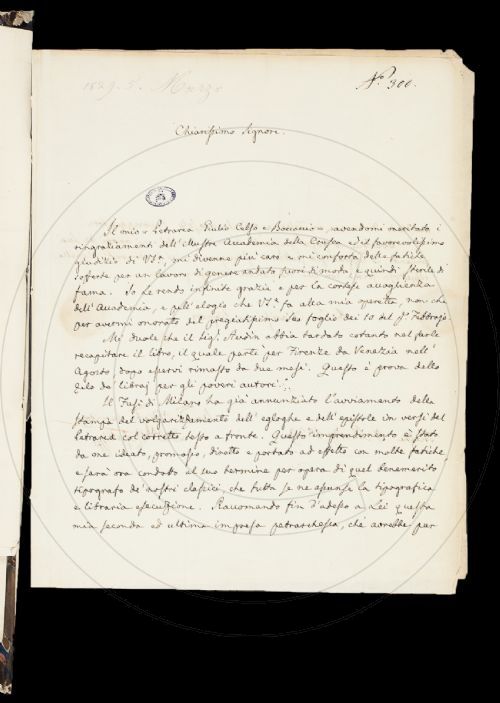 1829. 5. Marzo
N.° 300.
Chiarissimo Signore.
Il mio "Petrarca Giulio Celso e Boccaccio", avendomi meritato i
ringraziamenti dell'Illustre Accademia della Crusca ed il favorevolissimo
giudizio di VS.ª, mi divenne più caro e mi conforta delle fatiche
sofferte per un lavoro di genere andato fuori di moda, e quindi sterile di
fama. Io Le rendo infinite grazie e per la cortese accoglienza
dell'Accademia, e pell'elogio che VS.ª fa alla mia operetta, non che
per avermi onorato del pregiatissimo suo foglio dei 10 del p.º Febbrajo.
Mi duole che il Sig.r Audin abbia tardato cotanto nel farle
recapitare il libro, il quale partì per Firenze da Venezia nell'
Agosto, dopo esservi rimasto da due mesi. Questo è prova dello
zelo de' libraj per gli poveri autori!..
Il Fusi di Milano ha già annunziato l'avviamento della
stampa del volgarizzamento dell'egloghe e dell'epistole in versi del
Petrarca col corretto testo a fronte. Questo imprendimento è stato
da me ideato, promosso, diretto e portato ad effetto con molte fatiche,
e sarà ora condotto al suo termine per opera di quel benemerito
tipografo de' nostri classici, che tutta se ne assunse la tipografica
e libraria esecuzione. Raccomando fin d'adesso a Lei questa
mia seconda ed ultima impresa petrarchesca, che avrebbe pur